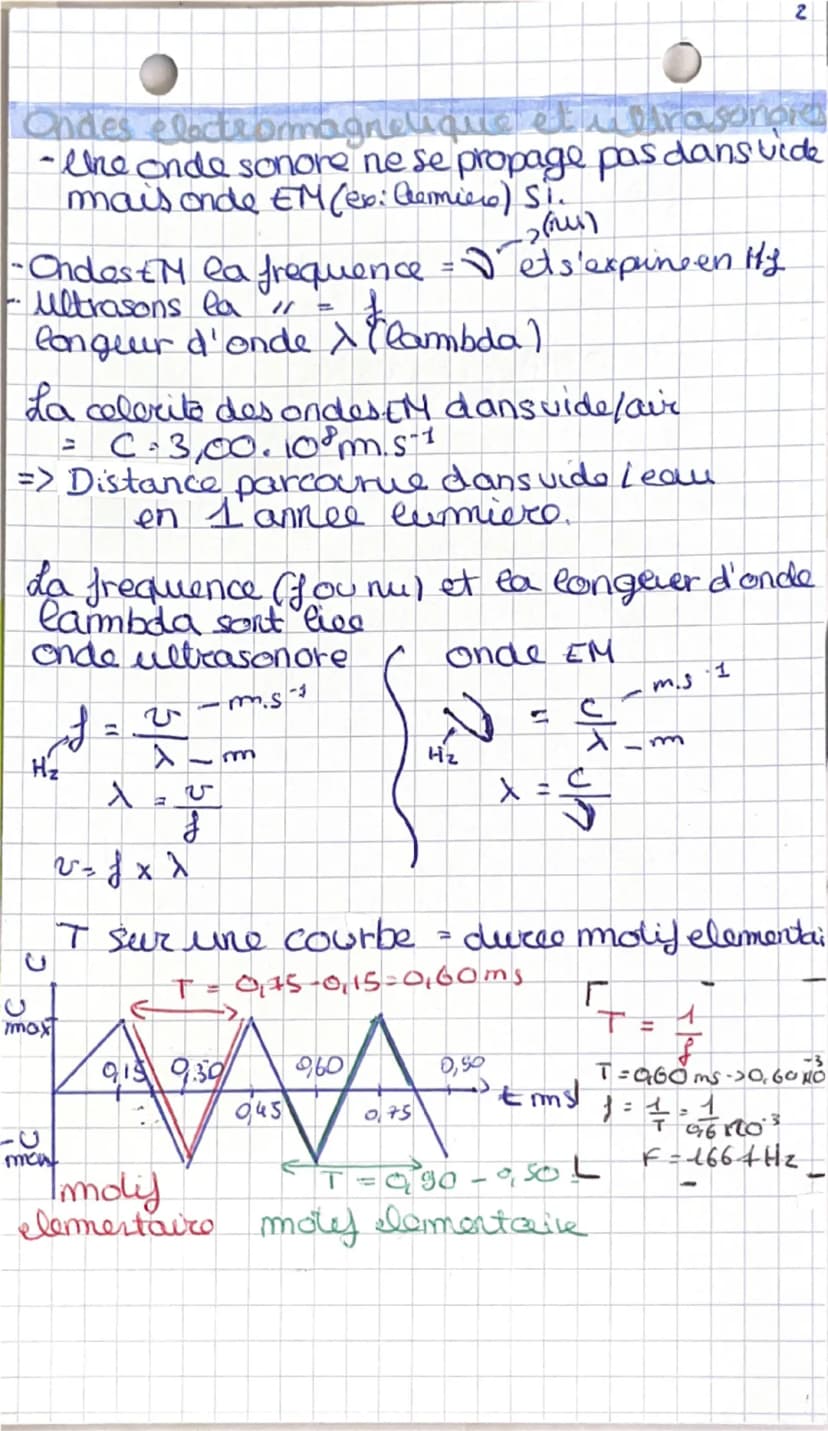 2
Ondes electromagnetique et ultrasonores
- Une onde sonore ne se propage pas dans vide
mais onde EM (ex: lumiere) Si.
(nu)
- Ondes EM la frequence = ν et s'exprime en Hz
- Ultrasons la " = f
longeur d'onde λ (lambda)
La celerite des ondes EM dans vide/air
= C = 3,00.10⁸ m.s⁻¹
=> Distance parcourue dans vide / eau
en 1 annee lumiere.
La frequence (f ou nu) et la longeuer d'onde
lambda sont liee
onde ultrasonore
f = v/λ
m.s⁻¹
m
Hz
λ = v/f
v = f x λ
onde EM
ν = c/λ
m.s⁻¹
m
Hz
λ = c/ν
T sur une courbe = duree motif elementai
U
T = 0,75 - 0,15 = 0,60 ms
U max
0,15 0,30 0,45 0,60 0,75
t ms
-U max
motif
elementaire
T = 0,90 - 0,50
motif elementaire
T = 1/f
T = 0,60 ms -> 0,60 x10⁻³
f = 1/T = 1/0,6 x10⁻³